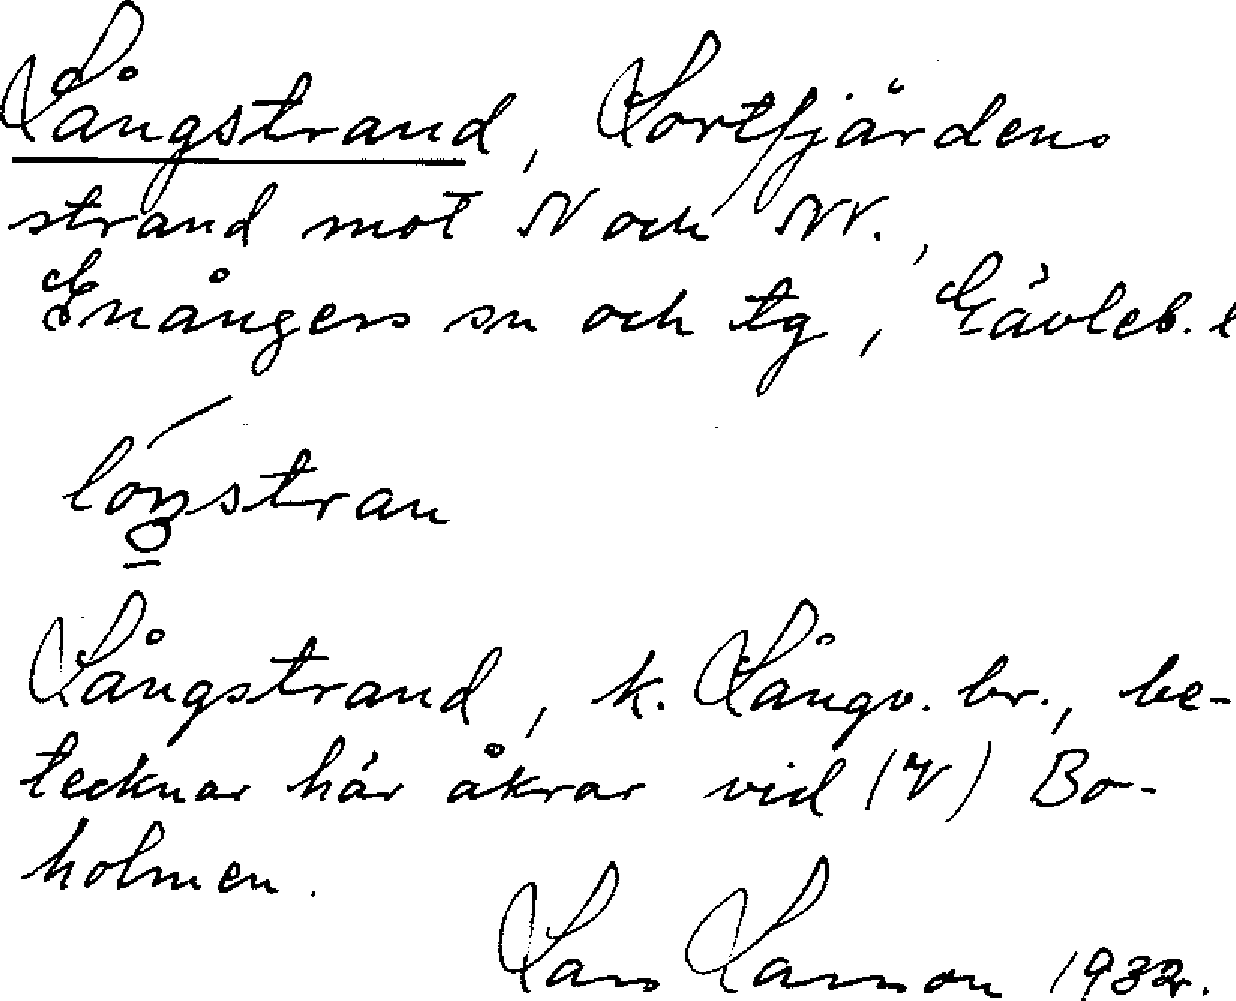 Långstrand, Lortfjärdens
strand mot N och NV.
Enångers sn och tg, Gävleb. l
lóŋstran
Långstrand, k. Långv. br., be-
tecknar här åkrar vid (V) Bo-
holmen.
Lars Larsson 1932.